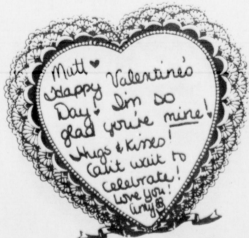 Mutt ♥
Happy Valentine's
Day! I'm so
glad you're mine!
Hugs & Kisses!
Can't wait to
celebrate!
Love you!